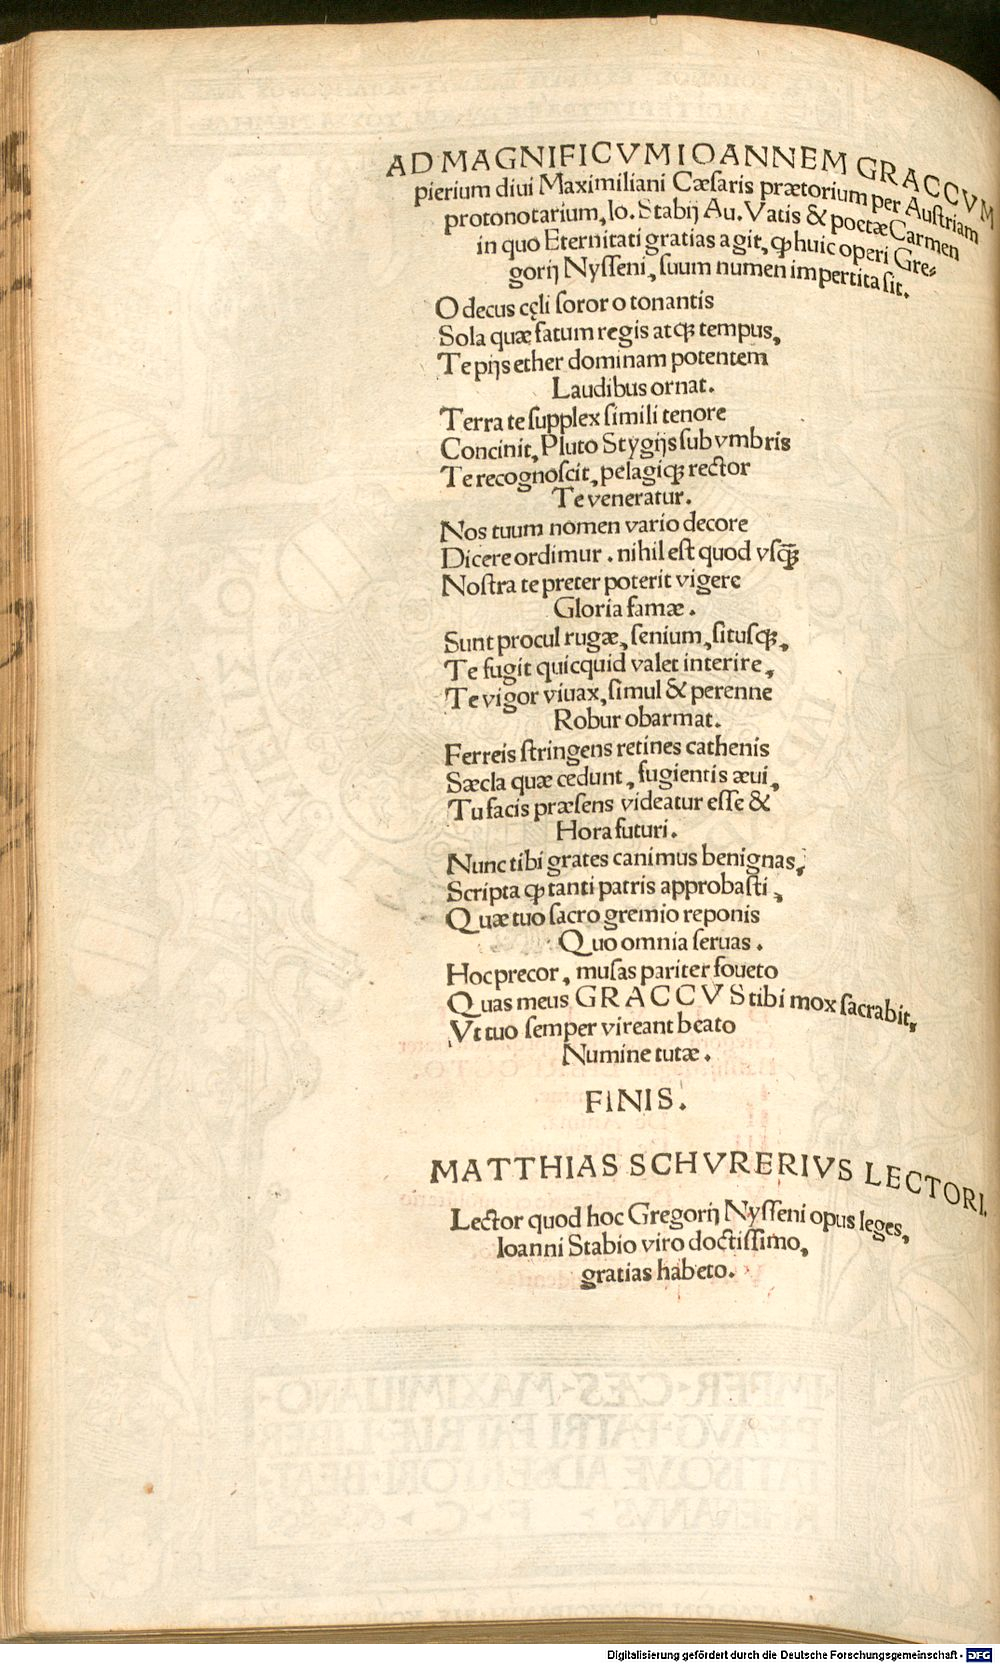 AD MAGNIFICVM IOANNEM GRACCVM
pierium diui Maximiliani Cæſaris prætorium per Auſtriam
protonotarium, Io. Stabij Au. Vatis & poetæ Carmen
in quo Eternitati gratias agit, ꝙ huic operi Gre⸗
gorij Nyſſeni, ſuum numen impertita ſit.
O decus cęli ſoror o tonantis
Sola quæ fatum regis atqꝫ tempus,
Te pijs ether dominam potentem
Laudibus ornat.
Terra te ſupplex ſimili tenore
Concinit, Pluto Stygijs ſub vmbris
Te recognoſcit, pelagiqꝫ rector
Te veneratur.
Nos tuum nomen vario decore
Dicere ordimur. nihil eſt quod vſqꝫ̃
Noſtra te preter poterit vigere
Gloria famæ.
Sunt procul rugæ, ſenium, ſituſqꝫ,
Te fugit quicquid valet interire,
Te vigor viuax, ſimul & perenne
Robur obarmat.
Ferreis ſtringens retines cathenis
Sæcla quæ cedunt, fugientis æui,
Tu facis præſens videatur eſſe &
Hora futuri.
Nunc tibi grates canimus benignas,
Scripta ꝙ tanti patris approbaſti,
Quæ tuo ſacro gremio reponis
Quo omnia ſeruas.
Hoc precor, muſas pariter foueto
Quas meus GRACCVS tibi mox ſacrabit,
Vt tuo ſemper vireant beato
Numine tutæ.
FINIS.
MATTHIAS SCHVRERIVS LECTORI.
Lector quod hoc Gregorij Nyſſeni opus leges,
Ioanni Stabio viro doctiſſimo,
gratias habeto.
Digitalisierung gefördert durch die Deutsche Forschungsgemeinschaft - DFG